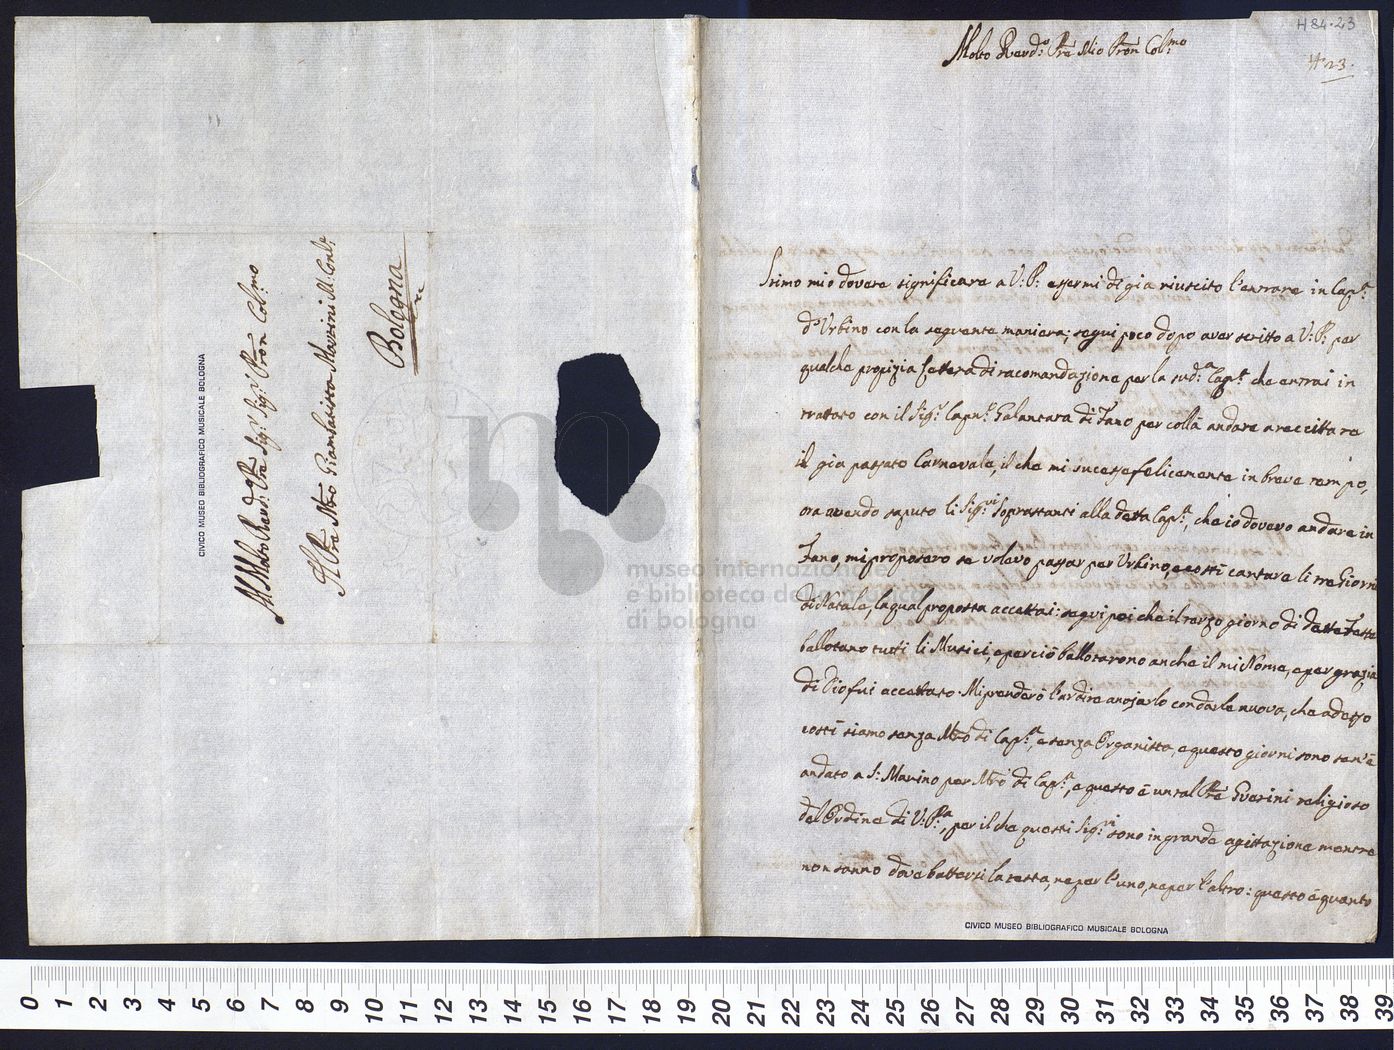 H 84.23
H 23.
Molto Revd:o Pre Mio Pron Col:mo
Stimo mio dovere significare a V: P: essermi di gia riuscito l'entrare in Cap:a
d'Urbino con la seguente maniera; segui poco dopo aver scritto a V: P: per
qualche propizia lettera di racomandazione per la sud:a Cap:a che entrai in
trattato con il Sig:r Capn:o Galantara di Fano per collà andare a reccittare
il già passato Carnevale, il che mi sucesse felicemente in breve tempo,
ora avendo saputo li Sig:ri Soprastanti alla detta Cap:a, che io dovevo andare in
Fano, mi proposero se volevo passar per Urbino, e costì cantare li tre Giorni
di Natale, la qual proposta accettai: segui poi che il terzo giorno di dette Feste
ballotano tutti li Musici, e perciò ballotarono anche il mi Nome, e per grazia
di Dio fui accettato. Mi prenderò l'ardire anojarlo con darle nuova, che adesso
costì siamo senza Mro di Cap:a, e senza Organista, e questo giorni sono sen'è
andato a S: Marino per Mro di Cap:a, e questo è un tal Pre Guerini religioso
del'Ordine di V: P:a, per il che questi Sig:ri sono in grande agittazione mentre
non sanno dove battersi la testa, ne per l'uno, ne per l'altro: questo è quanto
Al Molto Revd: Pre Sig:r Sig:r Pron Col:mo
Il Pre Mro Giambatista Martini M: Conv:e
Bologna
CIVICO MUSEO BIBLIOGRAFICO MUSICALE BOLOGNA
CIVICO MUSEO BIBLIOGRAFICO MUSICALE BOLOGNA
museo internazionale
e biblioteca della musica
di bologna
0 1 2 3 4 5 6 7 8 9 10 11 12 13 14 15 16 17 18 19 20 21 22 23 24 25 26 27 28 29 30 31 32 33 34 35 36 37 38 39